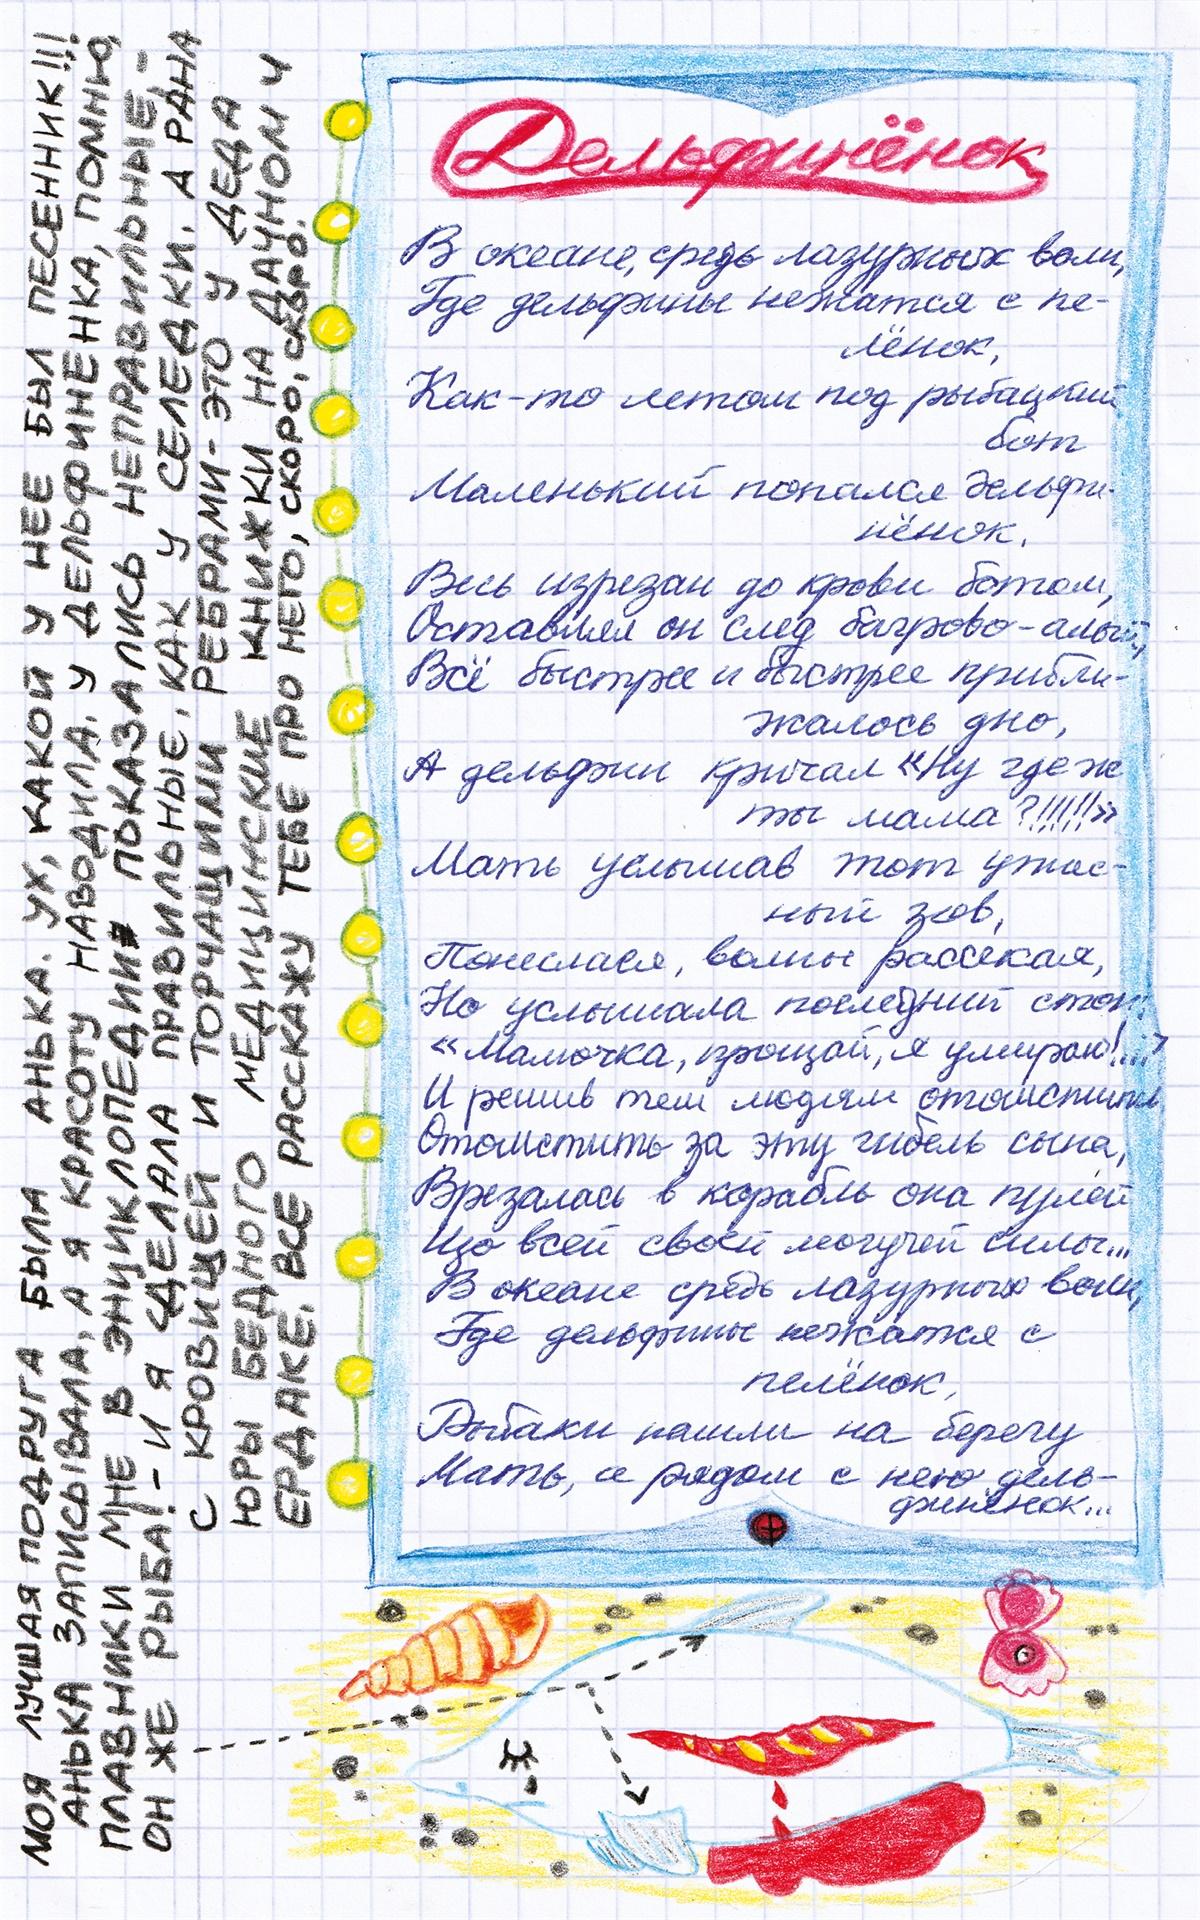 МОЯ ЛУЧШАЯ ПОДРУГА БЫЛА АНЬКА. УХ, КАКОЙ У НЕЕ БЫЛ ПЕСЕННИК!!!
АНЬКА ЗАПИСЫВАЛА, А Я КРАСОТУ НАВОДИЛА. У ДЕЛЬФИНЕНКА, ПОМНЮ,
ПЛАВНИКИ МНЕ В ЭНЦИКЛОПЕДИИ ПОКАЗАЛИСЬ НЕПРАВИЛЬНЫЕ -
ОН ЖЕ РЫБА! - И Я СДЕЛАЛА ПРАВИЛЬНЫЕ, КАК У СЕЛЕДКИ. А РАНА
С КРОВИЩЕЙ И ТОРЧАЩИМИ РЕБРАМИ - ЭТО У ДЕДА
ЮРЫ БЕДНОГО МЕДИЦИНСКИЕ КНИЖКИ НА ДАЧНОМ Ч
ЕРДАКЕ. ВСЕ РАССКАЖУ ТЕБЕ ПРО НЕГО, СКОРО, СКОРО.
Дельфинёнок
В океане, средь лазурных волн,
Где дельфины нежатся с пе-
лёнок,
Как-то летом под рыбацкий
бот
Маленький попался дельфи-
нёнок.
Весь изрезан до крови ботом,
Оставлял он след багрово-алый,
Всё быстрее и быстрее прибли-
жалось дно,
А дельфин кричал «Ну где ж
ты мама?!!!!!»
Мать услышав тот ужас-
ный зов,
Понеслася, волны рассекая,
Но услышала последний стон:
«Мамочка, прощай, я умираю!...»
И решив тем людям отомстить
Отомстить за эту гибель сына,
Врезалась в корабль она пулей
Изо всей своей могучей силы...
В океане средь лазурных волн,
Где дельфины нежатся с
пелёнок,
Рыбаки нашли на берегу
Мать, а рядом с нею дель-
финёнок...